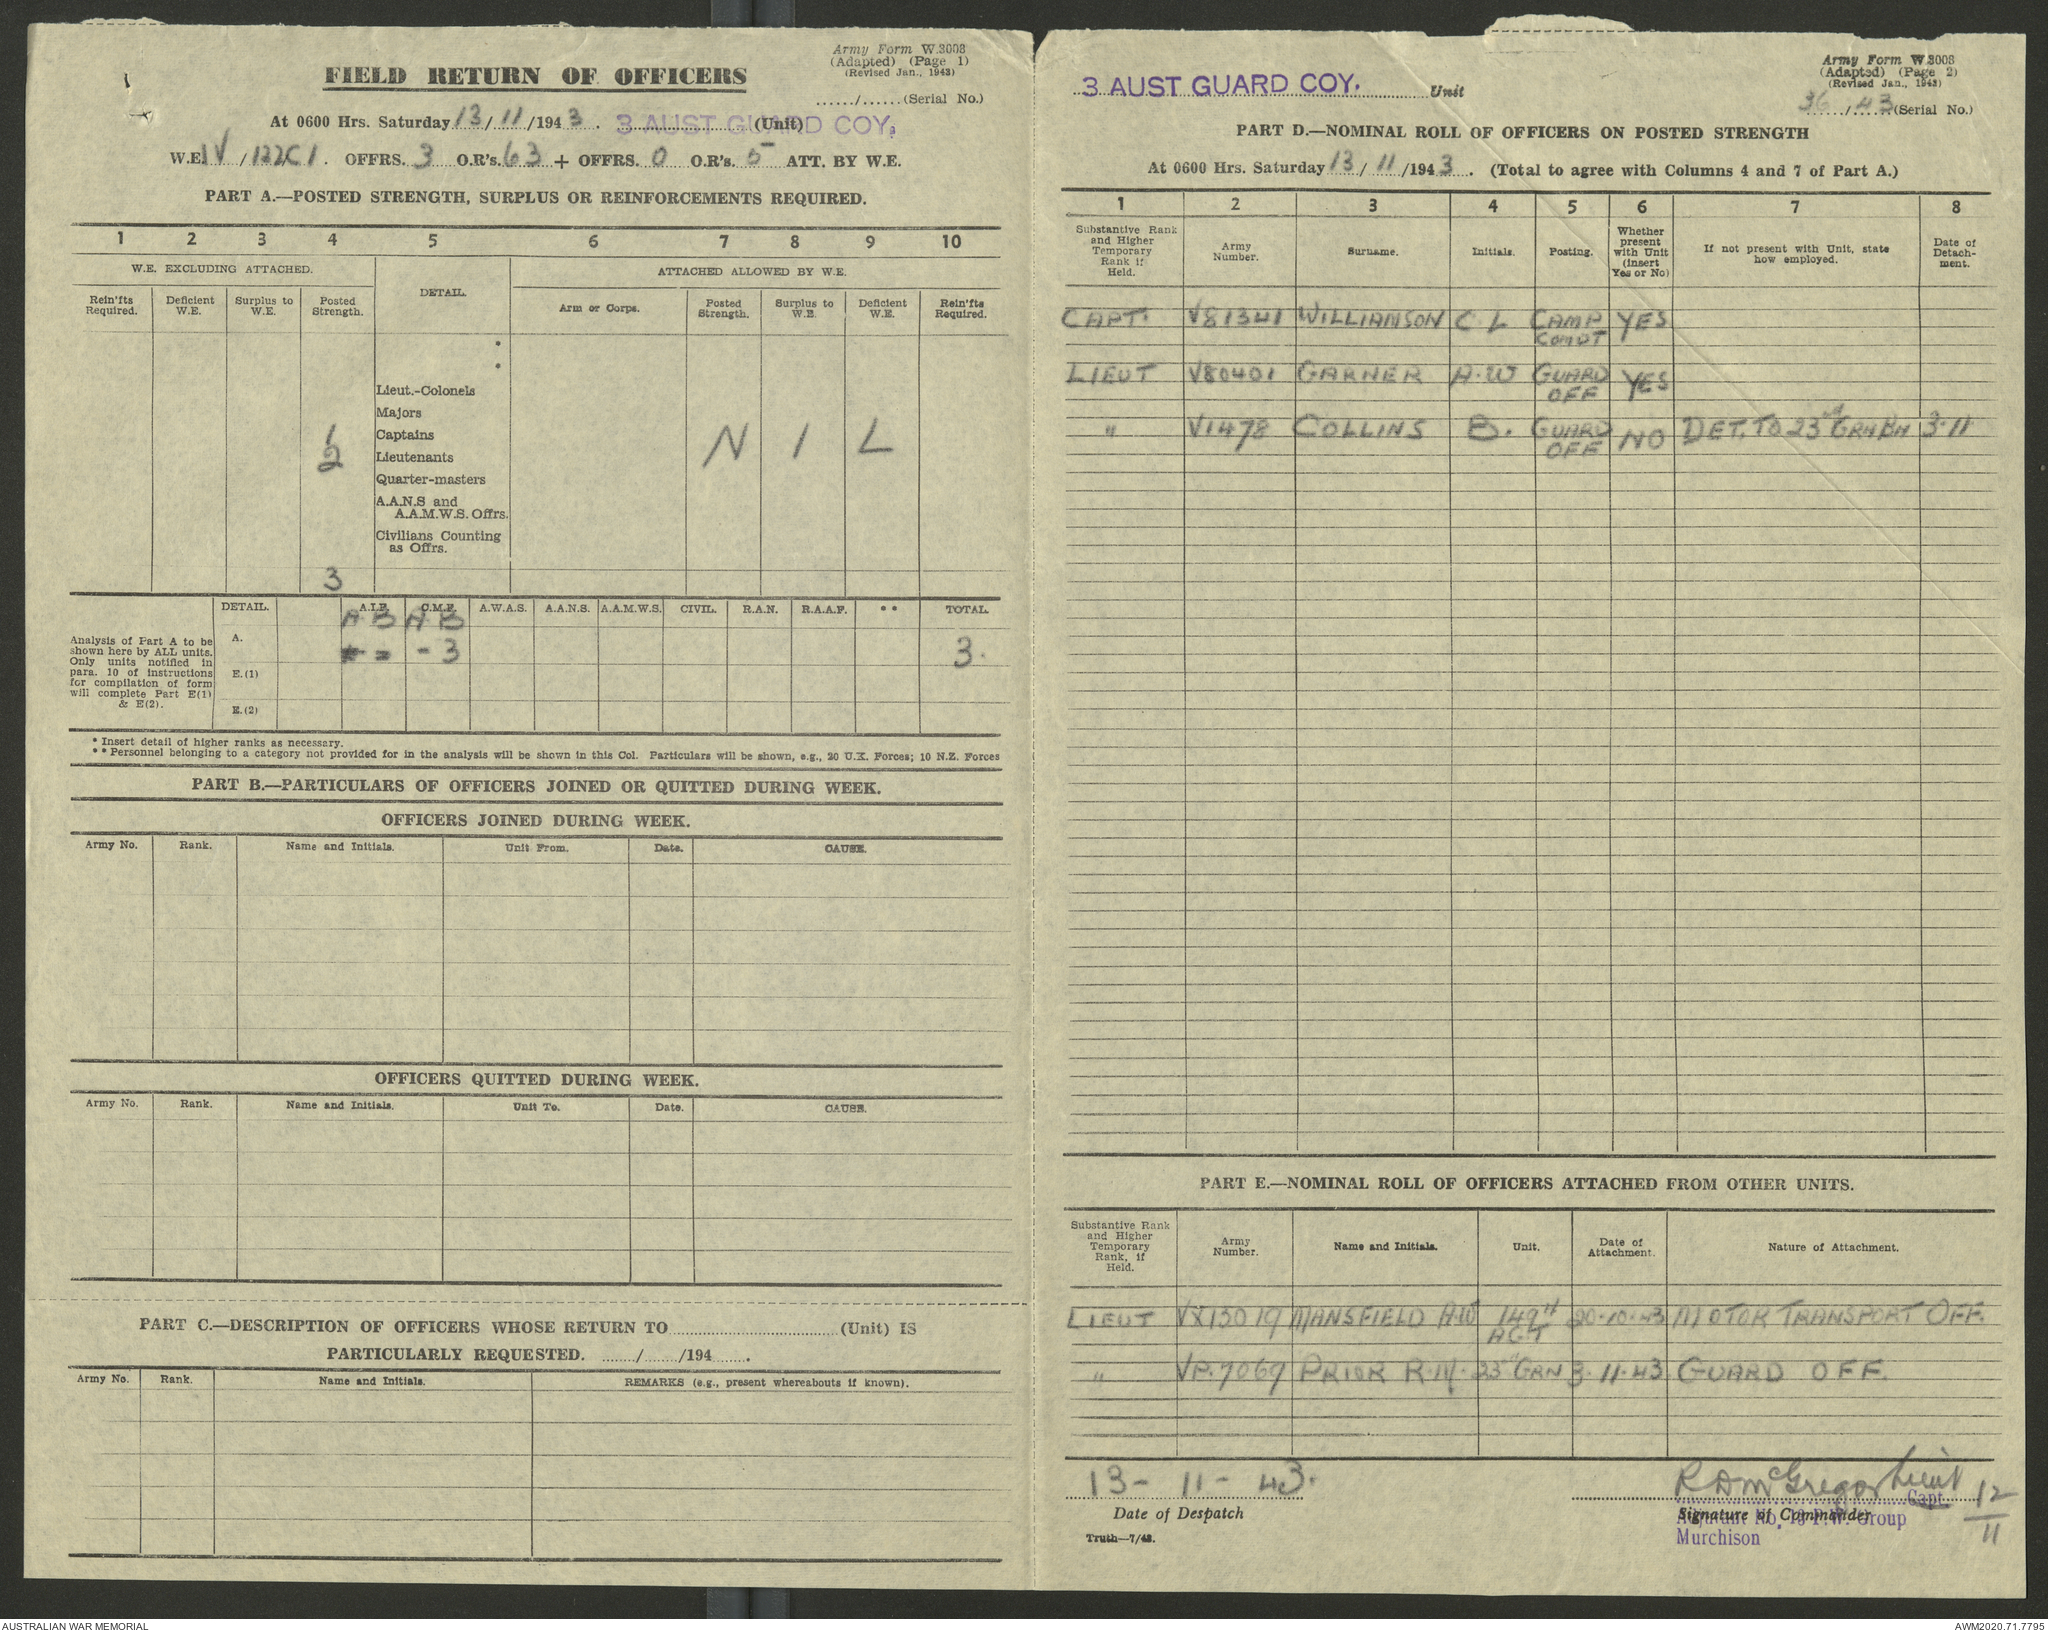 Army Form W.3008
(Adapted) (Page 1)
(Revised Jan., 1943)
FIELD RETURN OF OFFICERS
....../......(Serial No.)
At 0600 Hrs. Saturday 13/11/1943. 3 AUST GUARD COY. (Unit)
W.E. IV/122C1. OFFRS. 3 O.R's. 63 + OFFRS. 0 O.R's. 5 ATT. BY W.E.
PART A.—POSTED STRENGTH, SURPLUS OR REINFORCEMENTS REQUIRED.
1 2 3 4 5 6 7 8 9 10
W.E. EXCLUDING ATTACHED. DETAIL. ATTACHED ALLOWED BY W.E.
Rein'fts Required. Deficient W.E. Surplus to W.E. Posted Strength. Arm or Corps. Posted Strength. Surplus to W.E. Deficient W.E. Rein'fts Required.
*
*
Lieut.-Colonels
Majors
1 Captains
2 Lieutenants N I L
Quarter-masters
A.A.N.S and
A.A.M.W.S. Offrs.
Civilians Counting
as Offrs.
3
DETAIL. A.I.F. C.M.F. A.W.A.S. A.A.N.S. A.A.M.W.S. CIVIL. R.A.N. R.A.A.F. ** TOTAL.
A B A B
A. - 3 3.
E.(1)
E.(2)
Analysis of Part A to be
shown here by ALL units.
Only units notified in
para. 10 of instructions
for compilation of form
will complete Part E(1)
& E(2).
* Insert detail of higher ranks as necessary.
** Personnel belonging to a category not provided for in the analysis will be shown in this Col. Particulars will be shown, e.g., 20 U.K. Forces; 10 N.Z. Forces
PART B.—PARTICULARS OF OFFICERS JOINED OR QUITTED DURING WEEK.
OFFICERS JOINED DURING WEEK.
Army No. Rank. Name and Initials. Unit From. Date. CAUSE.
OFFICERS QUITTED DURING WEEK.
Army No. Rank. Name and Initials. Unit To. Date. CAUSE.
PART C.—DESCRIPTION OF OFFICERS WHOSE RETURN TO..............................(Unit) IS
PARTICULARLY REQUESTED. ......./......./194.......
Army No. Rank. Name and Initials. REMARKS (e.g., present whereabouts if known).
Army Form W.3008
(Adapted) (Page 2)
(Revised Jan., 1943)
3 AUST GUARD COY. Unit
36/43 (Serial No.)
PART D.—NOMINAL ROLL OF OFFICERS ON POSTED STRENGTH
At 0600 Hrs. Saturday 13/11/1943. (Total to agree with Columns 4 and 7 of Part A.)
1 2 3 4 5 6 7 8
Substantive Rank and Higher Temporary Rank if Held. Army Number. Surname. Initials. Posting. Whether present with Unit (insert Yes or No) If not present with Unit, state how employed. Date of Detach-ment.
CAPT. V81341 WILLIAMSON C L CAMP COMDT YES
LIEUT V80401 GARNER A.W GUARD OFF YES
" V1478 COLLINS B. GUARD OFF NO DET. TO 23rd GRN BN 3-11
PART E.—NOMINAL ROLL OF OFFICERS ATTACHED FROM OTHER UNITS.
Substantive Rank and Higher Temporary Rank, if Held. Army Number. Name and Initials. Unit. Date of Attachment. Nature of Attachment.
LIEUT VX13019 MANSFIELD A.W 149th AGT 20-10-43 MOTOR TRANSPORT OFF.
" VP.7069 PRIOR R.M. GRN 3-11-43 GUARD OFF.
13-11-43.
Date of Despatch
Truth—7/43.
R D McGregor Lieut 12/11
Capt
Signature of Commander
Adjutant No. 13 P.W. Group
Murchison
AUSTRALIAN WAR MEMORIAL
AWM2020.71.7795